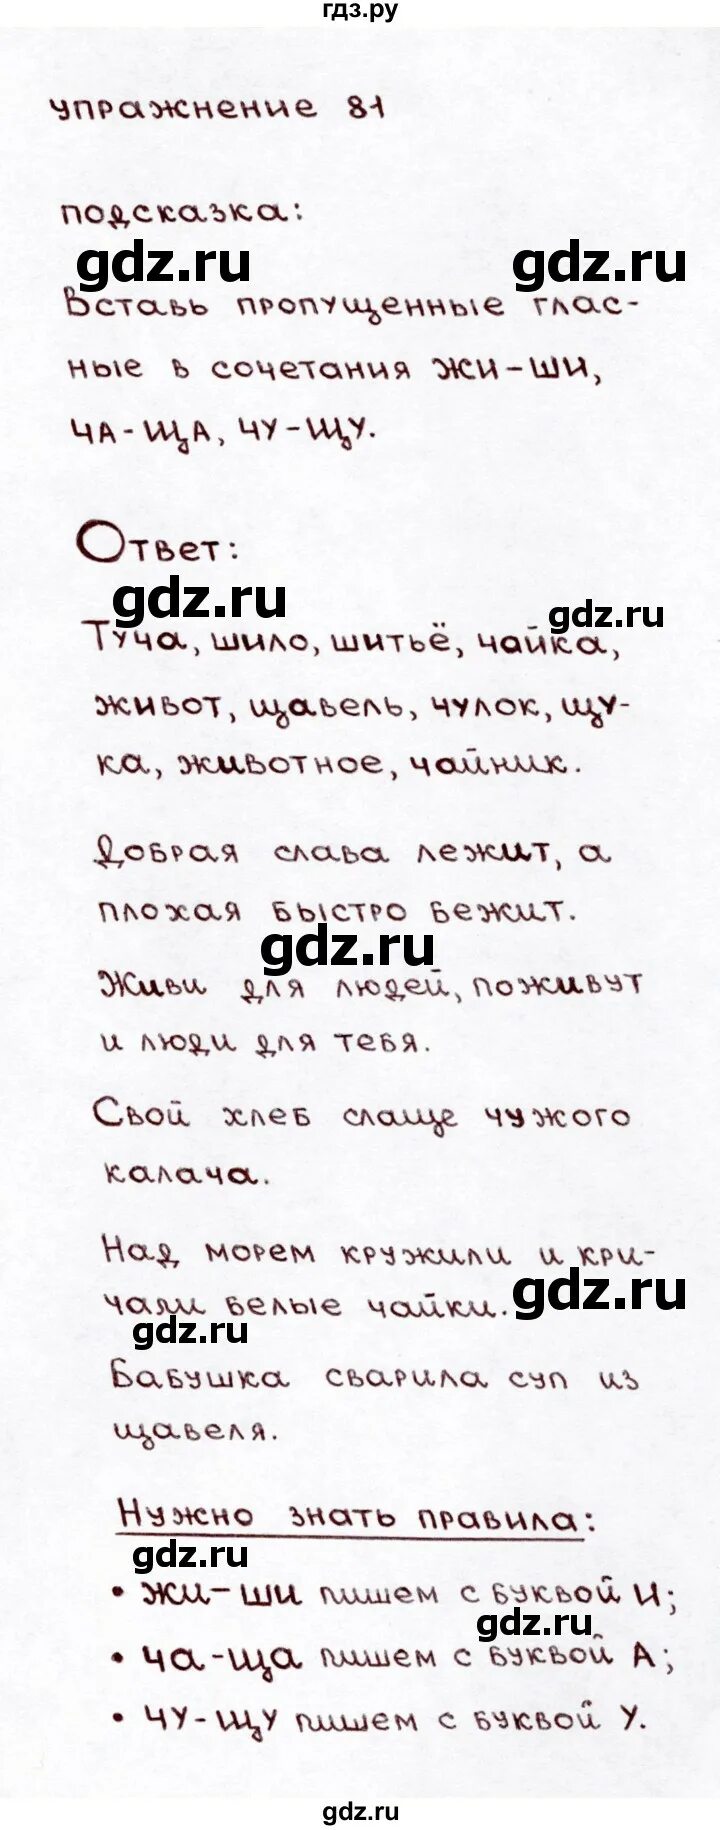 гдз.ру
упражнение 81
подсказка:
gdz.ru gdz.ru
Вставь пропущенные глас-
ные в сочетания жи-ши,
ча-ща, чу-щу.
Ответ:
gdz.ru gdz.ru
Туча, шило, шитьё, чайка,
живот, щавель, чулок, щу-
ка, животное, чайник.
Добрая слава лежит, а
плохая быстро бежит.
gdz.ru
Живи для людей, поживут
и люди для тебя.
Свой хлеб слаще чужого
калача.
Над морем кружили и кри-
чали белые чайки. gdz.ru
gdz.ru
Бабушка сварила суп из
щавеля.
Нужно знать правила:
gdz.ru
• жи-ши пишем с буквой И;
gdz.ru
• ча-ща пишем с буквой А;
• чу-щу пишем с буквой У.
gdz.ru